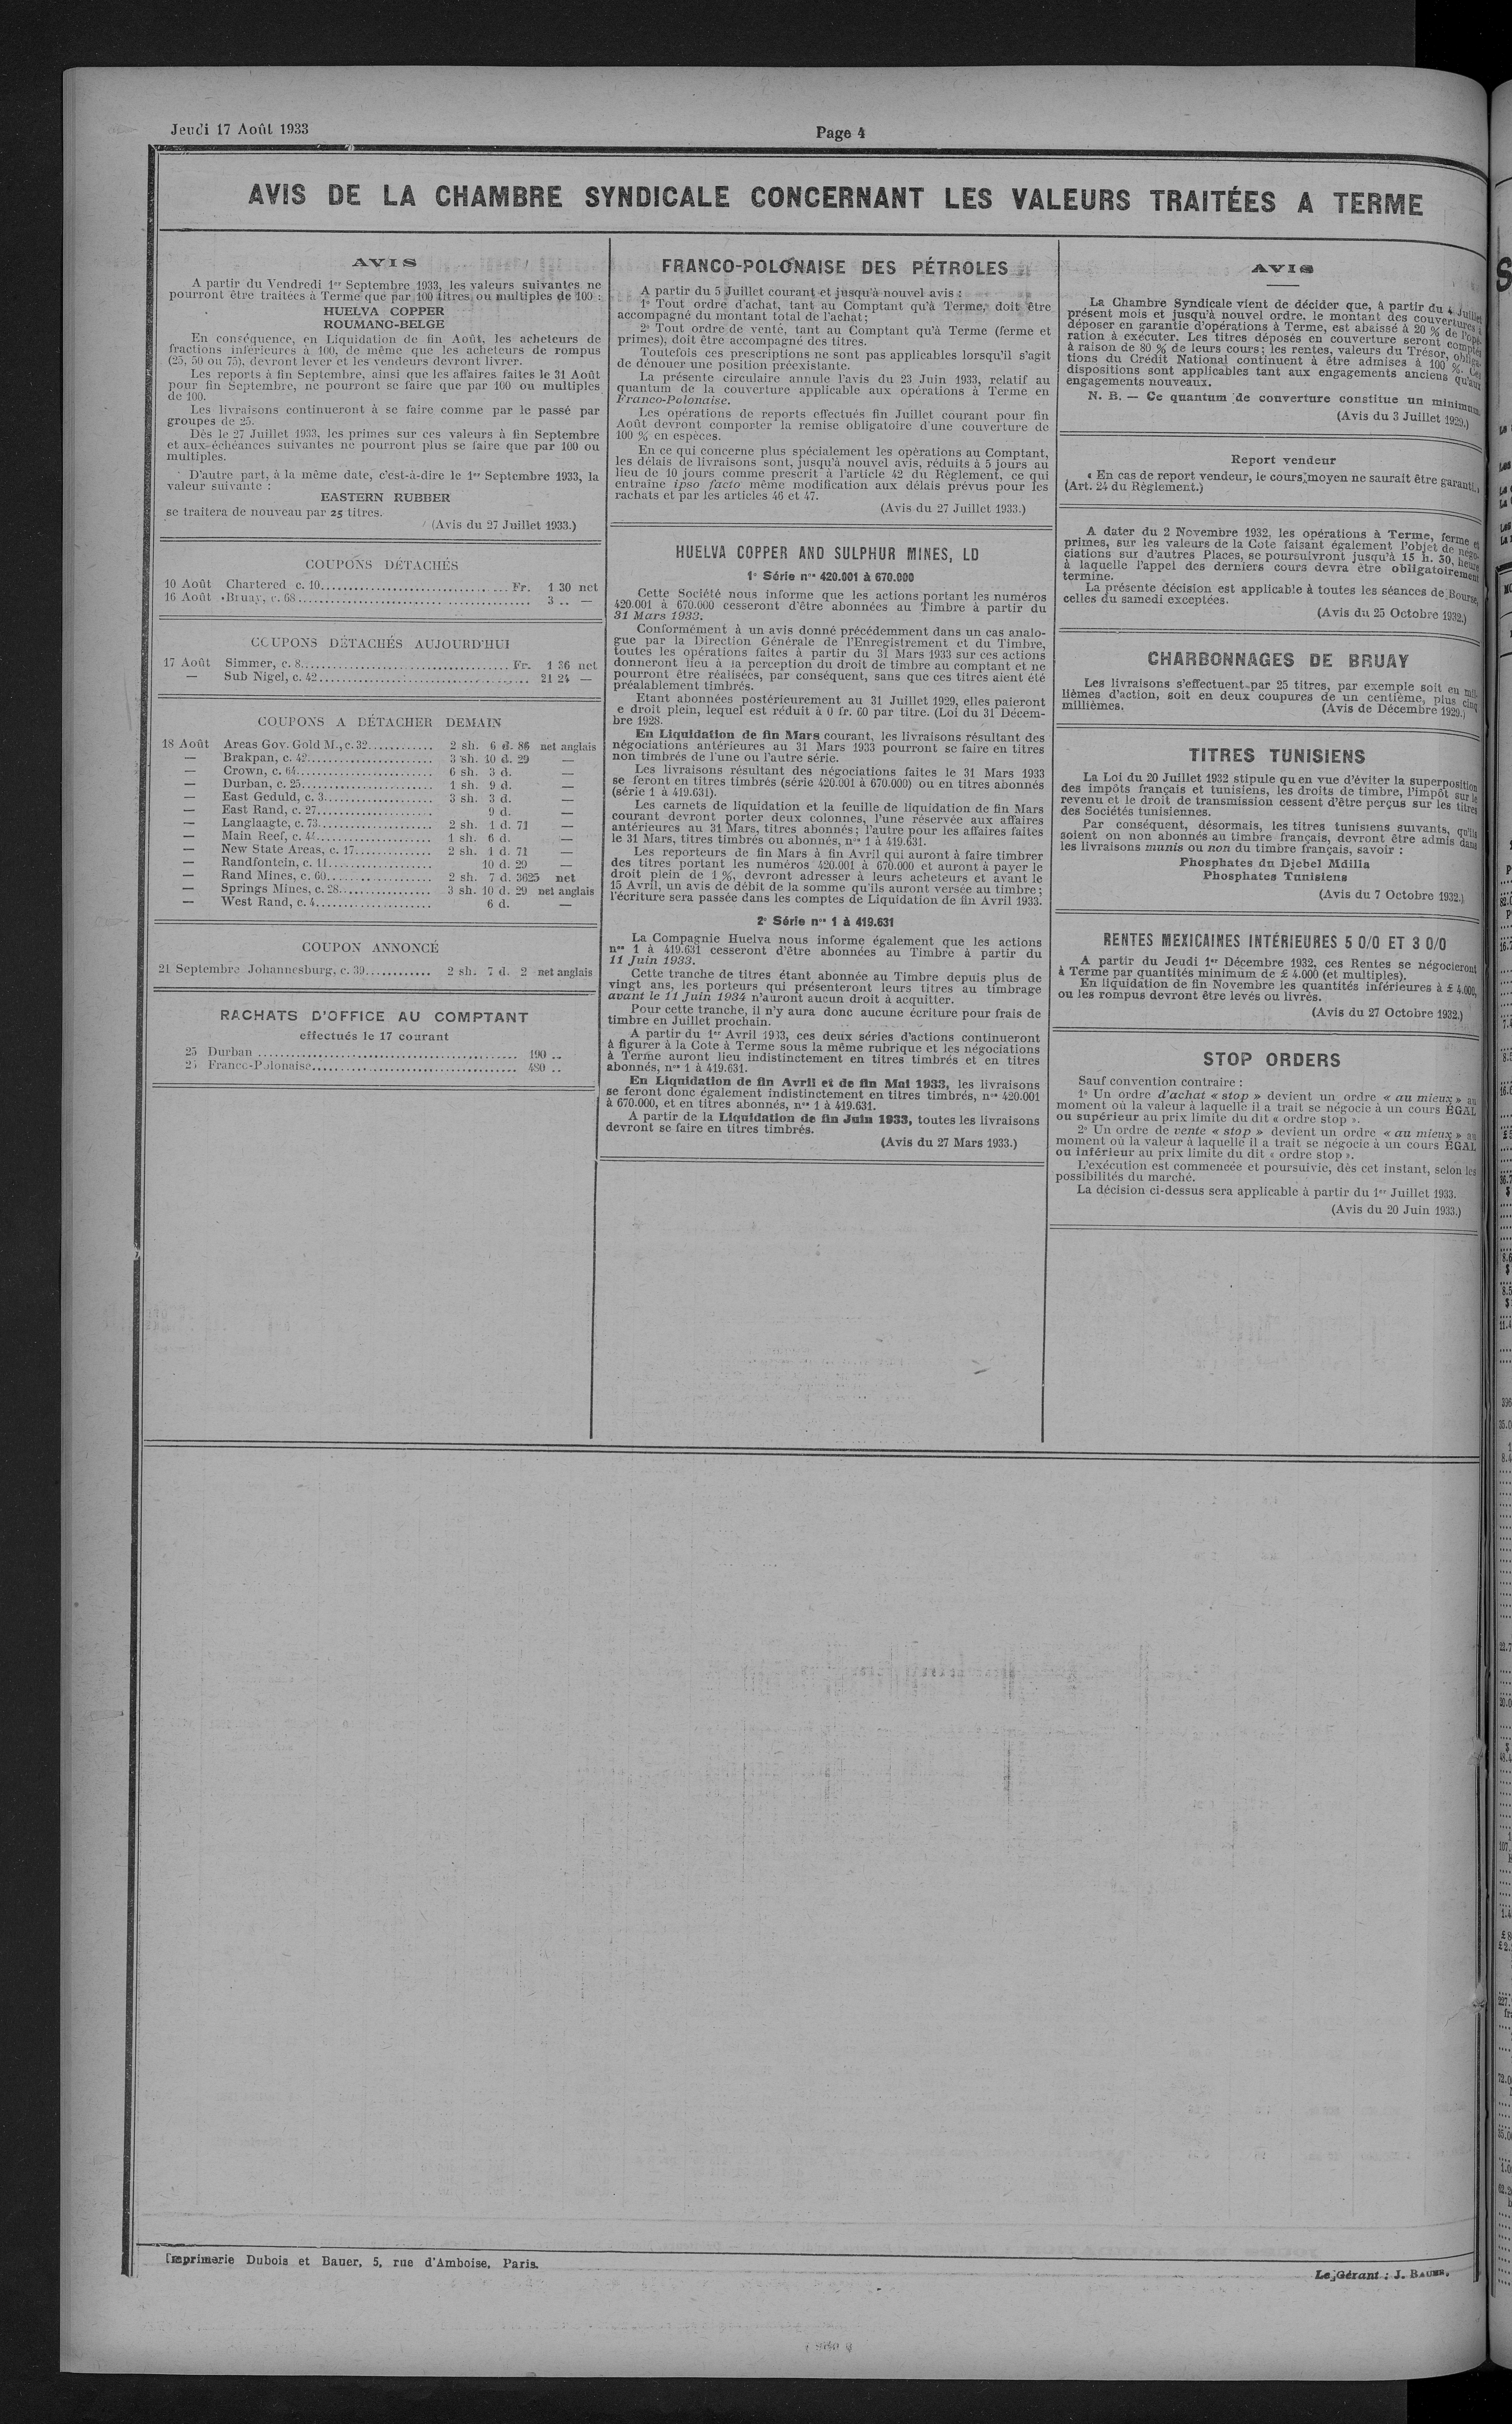 Jeudi 17 Août 1933
Page 4
AVIS DE LA CHAMBRE SYNDICALE CONCERNANT LES VALEURS TRAITÉES A TERME
AVIS
A partir du Vendredi 1er Septembre 1933, les valeurs suivantes ne
pourront être traitées à Terme que par 100 titres ou multiples de 100 :
HUELVA COPPER
ROUMANO-BELGE
En conséquence, en Liquidation de fin Août, les acheteurs de
fractions inférieures à 100, de même que les acheteurs de rompus
(25, 50 ou 75), devront lever et les vendeurs devront livrer.
Les reports à fin Septembre, ainsi que les affaires faites le 31 Août
pour fin Septembre, ne pourront se faire que par 100 ou multiples
de 100.
Les livraisons continueront à se faire comme par le passé par
groupes de 25.
Dès le 27 Juillet 1933, les primes sur ces valeurs à fin Septembre
et aux échéances suivantes ne pourront plus se faire que par 100 ou
multiples.
D'autre part, à la même date, c'est-à-dire le 1er Septembre 1933, la
valeur suivante :
EASTERN RUBBER
se traitera de nouveau par 25 titres.
(Avis du 27 Juillet 1933.)
COUPONS DÉTACHÉS
10 Août Chartered c. 10.................... Fr. 1 30 net
16 Août Bruay, c. 68.................... 3 .. —
COUPONS DÉTACHÉS AUJOURD'HUI
17 Août Simmer, c. 8.................... Fr. 1 36 net
— Sub Nigel, c. 42.................... 21 24 —
COUPONS A DÉTACHER DEMAIN
18 Août Areas Gov. Gold M., c. 32............ 2 sh. 6 d. 86 net anglais
— Brakpan, c. 42............ 3 sh. 10 d. 29 —
— Crown, c. 64............ 6 sh. 3 d. —
— Durban, c. 25............ 1 sh. 9 d. —
— East Geduld, c. 3............ 3 sh. 3 d. —
— East Rand, c. 27............ 9 d. —
— Langlaagte, c. 73............ 2 sh. 1 d. 71 —
— Main Reef, c. 44............ 1 sh. 6 d. —
— New State Areas, c. 17............ 2 sh. 1 d. 71 —
— Randfontein, c. 11............ 10 d. 29 —
— Rand Mines, c. 60............ 2 sh. 7 d. 3625 net
— Springs Mines, c. 28............ 3 sh. 10 d. 29 net anglais
— West Rand, c. 4............ 6 d. —
COUPON ANNONCÉ
21 Septembre Johannesburg, c. 39............ 2 sh. 7 d. 2 net anglais
RACHATS D'OFFICE AU COMPTANT
effectués le 17 courant
25 Durban .................... 190 ..
25 Franco-Polonaise.................... 480 ..
FRANCO-POLONAISE DES PÉTROLES
A partir du 5 Juillet courant et jusqu'à nouvel avis :
1° Tout ordre d'achat, tant au Comptant qu'à Terme, doit être
accompagné du montant total de l'achat;
2° Tout ordre de vente, tant au Comptant qu'à Terme (ferme et
primes), doit être accompagné des titres.
Toutefois ces prescriptions ne sont pas applicables lorsqu'il s'agit
de dénouer une position préexistante.
La présente circulaire annule l'avis du 23 Juin 1933, relatif au
quantum de la couverture applicable aux opérations à Terme en
Franco-Polonaise.
Les opérations de reports effectués fin Juillet courant pour fin
Août devront comporter la remise obligatoire d'une couverture de
100 % en espèces.
En ce qui concerne plus spécialement les opérations au Comptant,
les délais de livraisons sont, jusqu'à nouvel avis, réduits à 5 jours au
lieu de 10 jours comme prescrit à l'article 42 du Règlement, ce qui
entraîne ipso facto même modification aux délais prévus pour les
rachats et par les articles 46 et 47.
(Avis du 27 Juillet 1933.)
HUELVA COPPER AND SULPHUR MINES, LD
1e Série nos 420.001 à 670.000
Cette Société nous informe que les actions portant les numéros
420.001 à 670.000 cesseront d'être abonnées au Timbre à partir du
31 Mars 1933.
Conformément à un avis donné précédemment dans un cas analo-
gue par la Direction Générale de l'Enregistrement et du Timbre,
toutes les opérations faites à partir du 31 Mars 1933 sur ces actions
donneront lieu à la perception du droit de timbre au comptant et ne
pourront être réalisées, par conséquent, sans que ces titres aient été
préalablement timbrés.
Etant abonnées postérieurement au 31 Juillet 1929, elles paieront
e droit plein, lequel est réduit à 0 fr. 60 par titre. (Loi du 31 Décem-
bre 1928.
En Liquidation de fin Mars courant, les livraisons résultant des
négociations antérieures au 31 Mars 1933 pourront se faire en titres
non timbrés de l'une ou l'autre série.
Les livraisons résultant des négociations faites le 31 Mars 1933
se feront en titres timbrés (série 420.001 à 670.000) ou en titres abonnés
(série 1 à 419.631).
Les carnets de liquidation et la feuille de liquidation de fin Mars
courant devront porter deux colonnes, l'une réservée aux affaires
antérieures au 31 Mars, titres abonnés; l'autre pour les affaires faites
le 31 Mars, titres timbrés ou abonnés, nos 1 à 419.631.
Les reporteurs de fin Mars à fin Avril qui auront à faire timbrer
des titres portant les numéros 420.001 à 670.000 et auront à payer le
droit plein de 1 %, devront adresser à leurs acheteurs et avant le
15 Avril, un avis de débit de la somme qu'ils auront versée au timbre;
l'écriture sera passée dans les comptes de Liquidation de fin Avril 1933.
2e Série nos 1 à 419.631
La Compagnie Huelva nous informe également que les actions
nos 1 à 419.631 cesseront d'être abonnées au Timbre à partir du
11 Juin 1933.
Cette tranche de titres étant abonnée au Timbre depuis plus de
vingt ans, les porteurs qui présenteront leurs titres au timbrage
avant le 11 Juin 1934 n'auront aucun droit à acquitter.
Pour cette tranche, il n'y aura donc aucune écriture pour frais de
timbre en Juillet prochain.
A partir du 1er Avril 1933, ces deux séries d'actions continueront
à figurer à la Cote à Terme sous la même rubrique et les négociations
à Terme auront lieu indistinctement en titres timbrés et en titres
abonnés, nos 1 à 419.631.
En Liquidation de fin Avril et de fin Mai 1933, les livraisons
se feront donc également indistinctement en titres timbrés, nos 420.001
à 670.000, et en titres abonnés, nos 1 à 419.631.
A partir de la Liquidation de fin Juin 1933, toutes les livraisons
devront se faire en titres timbrés.
(Avis du 27 Mars 1933.)
AVIS
La Chambre Syndicale vient de décider que, à partir du 4 Juillet
présent mois et jusqu'à nouvel ordre, le montant des couvertures à
déposer en garantie d'opérations à Terme, est abaissé à 20 % de l'opé-
ration à exécuter. Les titres déposés en couverture seront comptés
à raison de 80 % de leurs cours; les rentes, valeurs du Trésor, obliga-
tions du Crédit National continuent à être admises à 100 %. Ces
dispositions sont applicables tant aux engagements anciens qu'aux
engagements nouveaux.
N. B. — Ce quantum de couverture constitue un minimum.
(Avis du 3 Juillet 1929.)
Report vendeur
« En cas de report vendeur, le cours moyen ne saurait être garanti. »
(Art. 24 du Règlement.)
A dater du 2 Novembre 1932, les opérations à Terme, ferme et
primes, sur les valeurs de la Cote faisant également l'objet de négo-
ciations sur d'autres Places, se poursuivront jusqu'à 15 h. 30, heure
à laquelle l'appel des derniers cours devra être obligatoirement
termine.
La présente décision est applicable à toutes les séances de Bourse,
celles du samedi exceptées.
(Avis du 25 Octobre 1932.)
CHARBONNAGES DE BRUAY
Les livraisons s'effectuent par 25 titres, par exemple soit en mil-
lièmes d'action, soit en deux coupures de un centième, plus cinq
millièmes.
(Avis de Décembre 1929.)
TITRES TUNISIENS
La Loi du 20 Juillet 1932 stipule qu en vue d'éviter la superposition
des impôts français et tunisiens, les droits de timbre, l'impôt sur le
revenu et le droit de transmission cessent d'être perçus sur les titres
des Sociétés tunisiennes.
Par conséquent, désormais, les titres tunisiens suivants, qu'ils
soient ou non abonnés au timbre français, devront être admis dans
les livraisons munis ou non du timbre français, savoir :
Phosphates du Djebel Mdilla
Phosphates Tunisiens
(Avis du 7 Octobre 1932.)
RENTES MEXICAINES INTÉRIEURES 5 0/0 ET 3 0/0
A partir du Jeudi 1er Décembre 1932, ces Rentes se négocieront
à Terme par quantités minimum de £ 4.000 (et multiples).
En liquidation de fin Novembre les quantités inférieures à £ 4.000,
ou les rompus devront être levés ou livrés.
(Avis du 27 Octobre 1932.)
STOP ORDERS
Sauf convention contraire :
1° Un ordre d'achat « stop » devient un ordre « au mieux » au
moment où la valeur à laquelle il a trait se négocie à un cours ÉGAL
ou supérieur au prix limite du dit « ordre stop ».
2° Un ordre de vente « stop » devient un ordre « au mieux » au
moment où la valeur à laquelle il a trait se négocie à un cours ÉGAL
ou inférieur au prix limite du dit « ordre stop ».
L'exécution est commencée et poursuivie, dès cet instant, selon les
possibilités du marché.
La décision ci-dessus sera applicable à partir du 1er Juillet 1933.
(Avis du 20 Juin 1933.)
Imprimerie Dubois et Bauer, 5, rue d'Amboise, Paris.
Le Gérant : J.